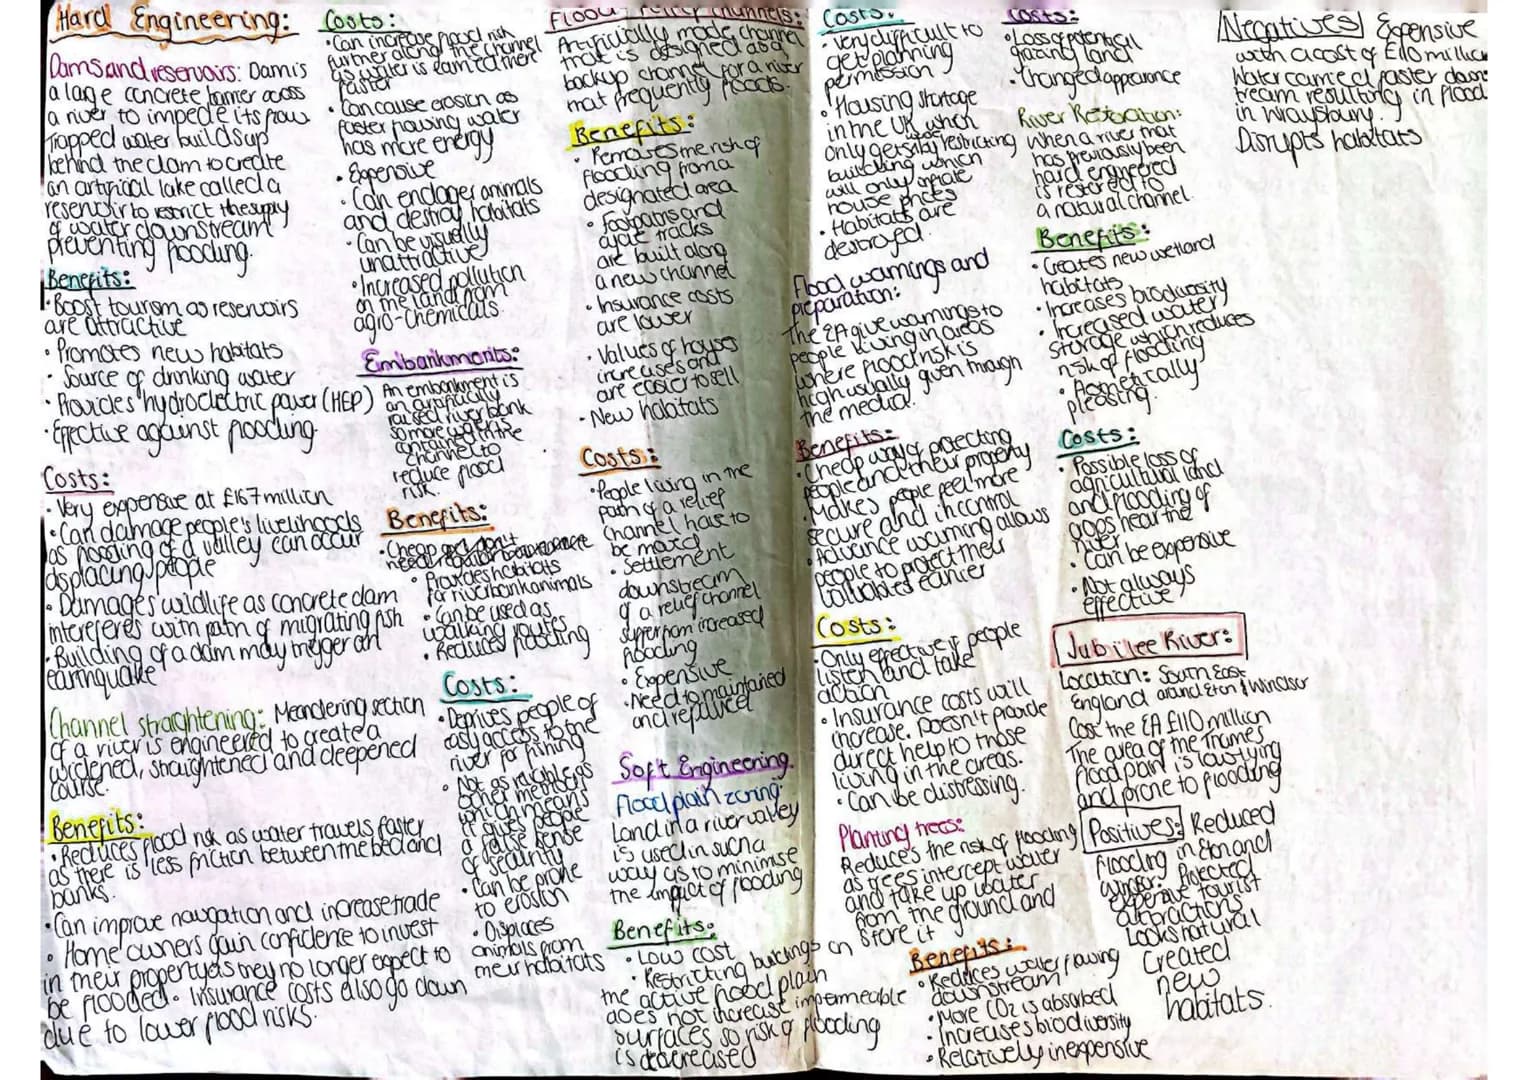 Hard Engineering:
Dams and reservoirs: Dam is
a large concrete barrier across
a river to impede its flow
Trapped water builds up
behind the dam to create
an artificial lake called a
reservoir to restrict the supply
of water downstream
preventing flooding.
Benefits:
· Boost tourism as reservoirs
are attractive
· Promotes new habitats
· Source of drinking water
· Provides hydroelectric power (HEP)
· Effective against flooding
Costs:
· Very expensive at £167 million
· Can damage people's livelihoods
as flooding of a valley can occur
displacing people
· Damages wildlife as concrete dam
intereferes with path of migrating fish
· Building of a dam may trigger an
earthquake
Channel straightening: Meandering section
of a river is engineered to create a
widened, straightened and deepened
course.
Benefits:
· Reduces flood risk as water travels faster
as there is less friction between the bed and
banks.
· Can improve navigation and increase trade
· Home owners gain confidence to invest
in their property as they no longer expect to
be flooded. Insurance costs also go down
due to lower flood risks.
Costs:
· Can increase flood risk
further along the channel
as water is carried there
faster
· Can cause erosion as
faster flowing water
has more energy
· Expensive
· Can endager animals
and destroy habitats
· Can be visually
unattractive
· Increased pollution
on the land from
agro-chemicals.
Embankments:
An embankment is
an artificially
raised river bank
so more water is
contained in the
channel to
reduce flood
risk.
Benefits:
· Cheap and don't
need
· Provides habitats
for riverbank animals
· Can be used as
walking routes
· Reduces flooding
Costs:
· Deprives people of
easy access to the
river for fishing
· Not as reliable as
other methods
which means
it gives people
a false sense
of security
· Can be prone
to erosion
· Displaces
animals from
their habitats
Flood relief channels:
Artificially made channel
that is designed as a
backup channel for a river
that frequently floods.
Benefits:
· Removes the risk of
flooding from a
designated area
· Footpaths and
cycle tracks
are built along
a new channel
· Insurance costs
are lower
· Values of houses
increases and
are easier to sell
· New habitats
Costs:
· People living in the
path of a relief
channel have to
be moved
· Settlement
downstream
of a relief channel
suffer from increased
flooding
· Expensive
· Need to maintained
and repaired
Soft Engineering
Flood plain zoning:
Land in a river valley
is used in such a
way as to minimise
the impact of flooding
Benefits:
· Low cost
· Restricting buildings on
the active flood plain
does not increase impermeable
surfaces so risk of flooding
is deacreased
Costs:
· Very difficult to
get planning
permission
· Housing shortage
in the UK which
only gets worse by restricting
building which
will only inflate
house prices
· Habitats are
destroyed.
Flood warnings and
preparation:
The EA give warnings to
people living in areas
where flood risk is
high usually given through
the media.
Benefits:
· Cheap way of protecting
people and their property
· Makes people feel more
secure and in control
· Advance warning allows
people to protect their
valuables earlier
Costs:
· Only effective if people
listen and take
action
· Insurance costs will
increase. Doesn't provide
direct help to those
living in the areas.
· Can be distressing.
Planting trees:
Reduces the risk of flooding
as trees intercept water
and take up water
from the ground and
store it
Benefits:
· Reduces water flowing
downstream
· More CO2 is absorbed
· Increases biodiversity
· Relatively inexpensive
Costs:
· Loss of potential
grazing land
· Changed appearance
River Restoration:
When a river that
has previously been
hard engineered
is restored to
a natural channel.
Benefits:
· Creates new wetland
habitats
· Increases biodiversity
· Increased water
storage which reduces
risk of flooding
· Aesthetically
pleasing.
Costs:
· Possible loss of
agricultural land
and flooding of
crops near the
river
· Can be expensive
· Not always
effective
Jubilee River:
Location: South East
England around Eton & Windsor
Cost the EA £110 million
The area of the Thames
flood plain is low-lying
and prone to flooding
Positives: Reduced
flooding in Eton and
Windsor. Protected
expensive tourist
attractions
Looks natural
Created
new
habitats.
Negatives Expensive
with a cost of £110 million
Water carried faster down
tream resulting in flood
in Wraysbury.
Disrupts habitats